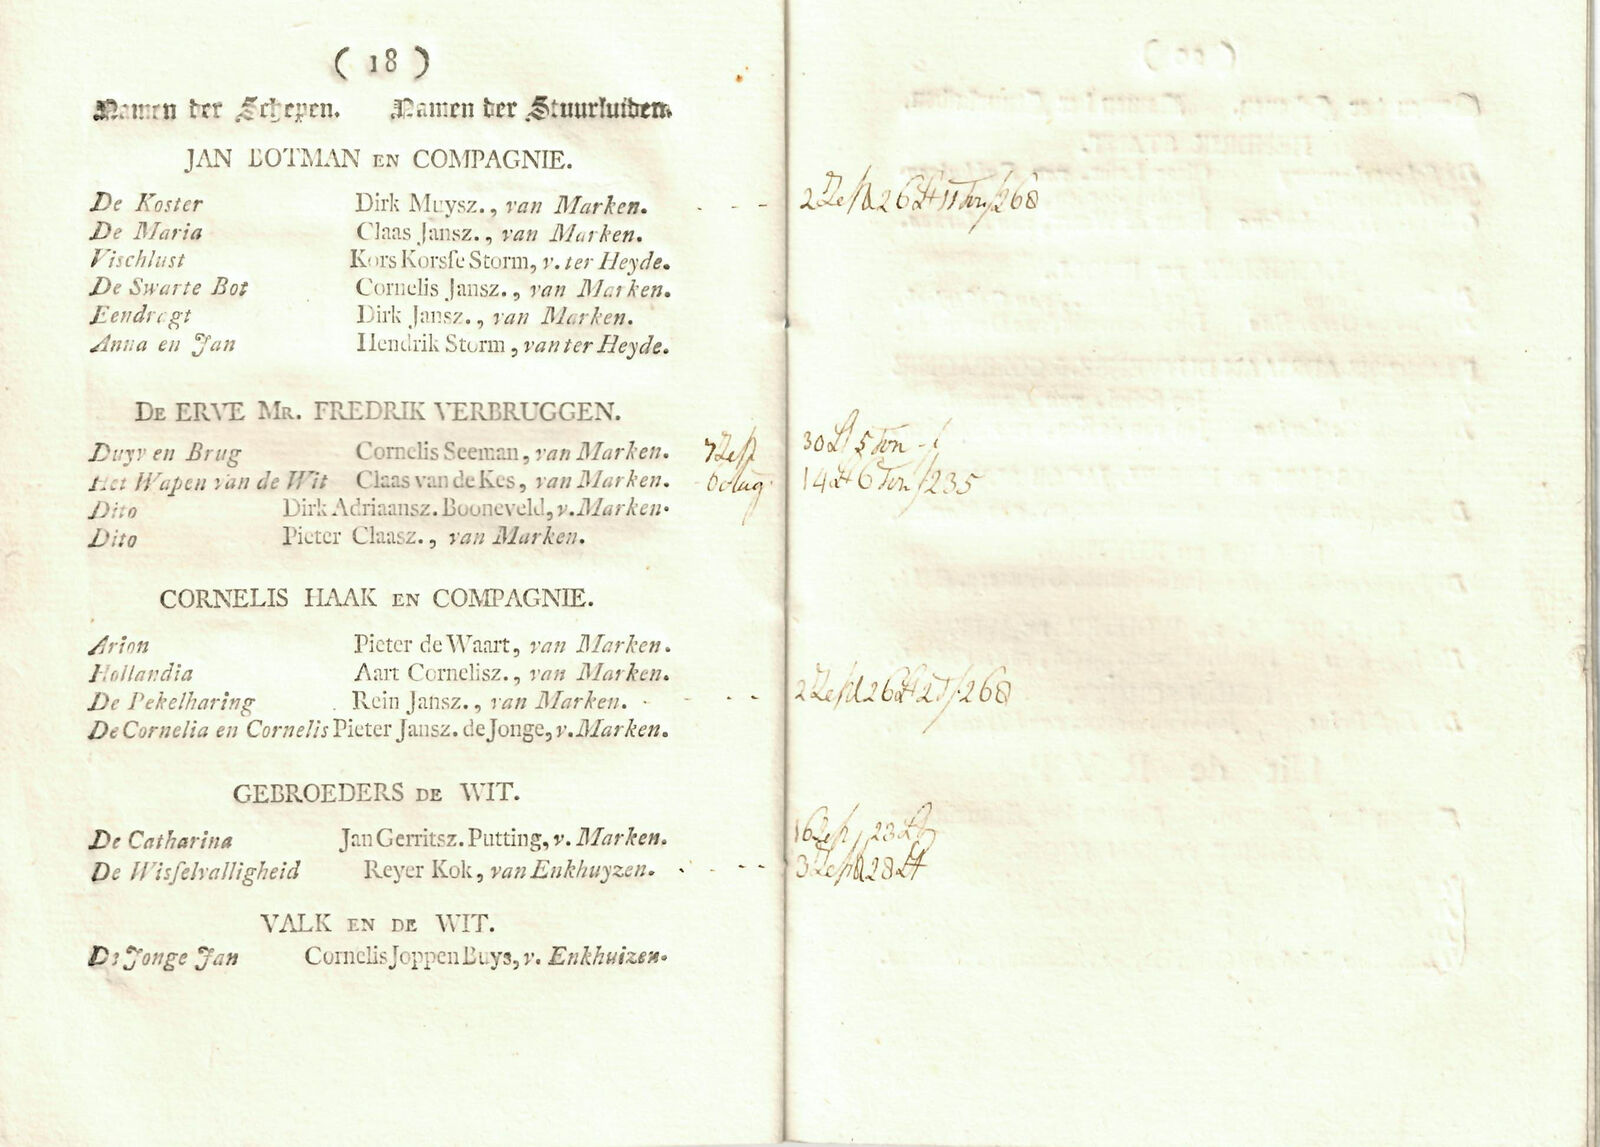 ( 18 )
Namen der Schepen. Namen der Stuurluiden.
JAN BOTMAN EN COMPAGNIE.
De Koster Dirk Muysz., van Marken. - - -
De Maria Claas Jansz., van Marken.
Vischlust Kors Korsse Storm, v. ter Heyde.
De Swarte Bot Cornelis Jansz., van Marken.
Eendragt Dirk Jansz., van Marken.
Anna en Jan Hendrik Storm, van ter Heyde.
DE ERVE MR. FREDRIK VERBRUGGEN.
Duyv en Brug Cornelis Seeman, van Marken. 30 5 Ton
Het Wapen van de Wit Claas van de Kes, van Marken. 14 6 Ton/235
Dito Dirk Adriaansz. Booneveld, v. Marken.
Dito Pieter Claasz., van Marken.
CORNELIS HAAK EN COMPAGNIE.
Arion Pieter de Waart, van Marken.
Hollandia Aart Cornelisz., van Marken.
De Pekelharing Rein Jansz., van Marken. - - -
De Cornelia en Cornelis Pieter Jansz. de Jonge, v. Marken.
GEBROEDERS DE WIT.
De Catharina Jan Gerritsz. Putting, v. Marken.
De Wisselvalligheid Reyer Kok, van Enkhuyzen. - - -
VALK EN DE WIT.
De Jonge Jan Cornelis Joppen Buys, v. Enkhuizen.